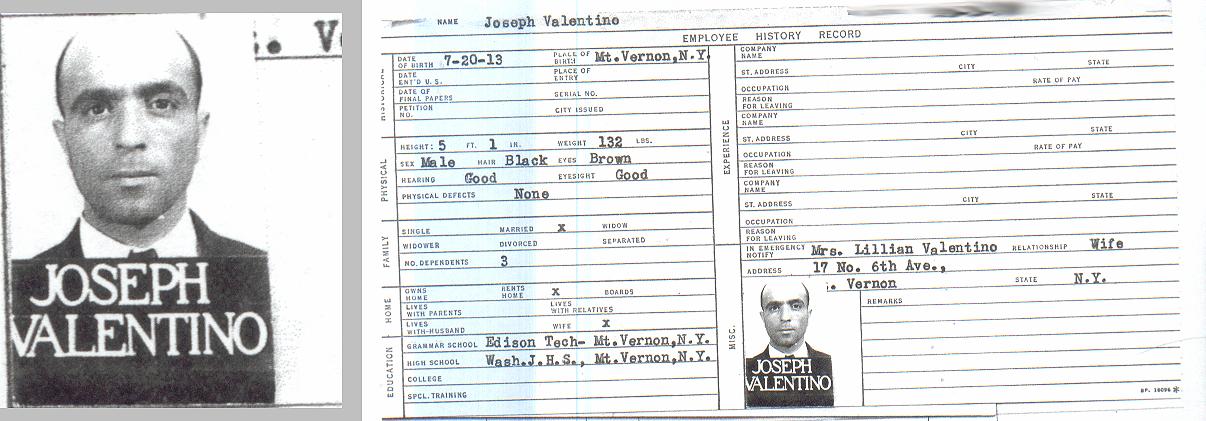 . V
JOSEPH
VALENTINO
NAME Joseph Valentino
EMPLOYEE HISTORY RECORD
DATE OF BIRTH 7-20-13 PLACE OF BIRTH Mt.Vernon,N.Y.
DATE ENT'D U.S. PLACE OF ENTRY
DATE OF FINAL PAPERS SERIAL NO.
PETITION NO. CITY ISSUED
PHYSICAL
HEIGHT: 5 FT. 1 IN. WEIGHT 132 LBS.
SEX Male HAIR Black EYES Brown
HEARING Good EYESIGHT Good
PHYSICAL DEFECTS None
FAMILY
SINGLE MARRIED x WIDOW
WIDOWER DIVORCED SEPARATED
NO. DEPENDENTS 3
HOME
OWNS HOME RENTS HOME x BOARDS
LIVES WITH PARENTS LIVES WITH RELATIVES
LIVES WITH-HUSBAND WIFE x
EDUCATION
GRAMMAR SCHOOL Edison Tech- Mt.Vernon,N.Y.
HIGH SCHOOL Wash.J.H.S., Mt.Vernon,N.Y.
COLLEGE
SPCL. TRAINING
EXPERIENCE
COMPANY NAME
ST. ADDRESS CITY STATE
OCCUPATION RATE OF PAY
REASON FOR LEAVING
COMPANY NAME
ST. ADDRESS CITY STATE
OCCUPATION RATE OF PAY
REASON FOR LEAVING
COMPANY NAME
ST. ADDRESS CITY STATE
OCCUPATION
REASON FOR LEAVING
MISC.
IN EMERGENCY NOTIFY Mrs. Lillian Valentino RELATIONSHIP Wife
ADDRESS 17 No. 6th Ave.,
. Vernon STATE N.Y.
REMARKS
JOSEPH
VALENTINO
BP. 18096